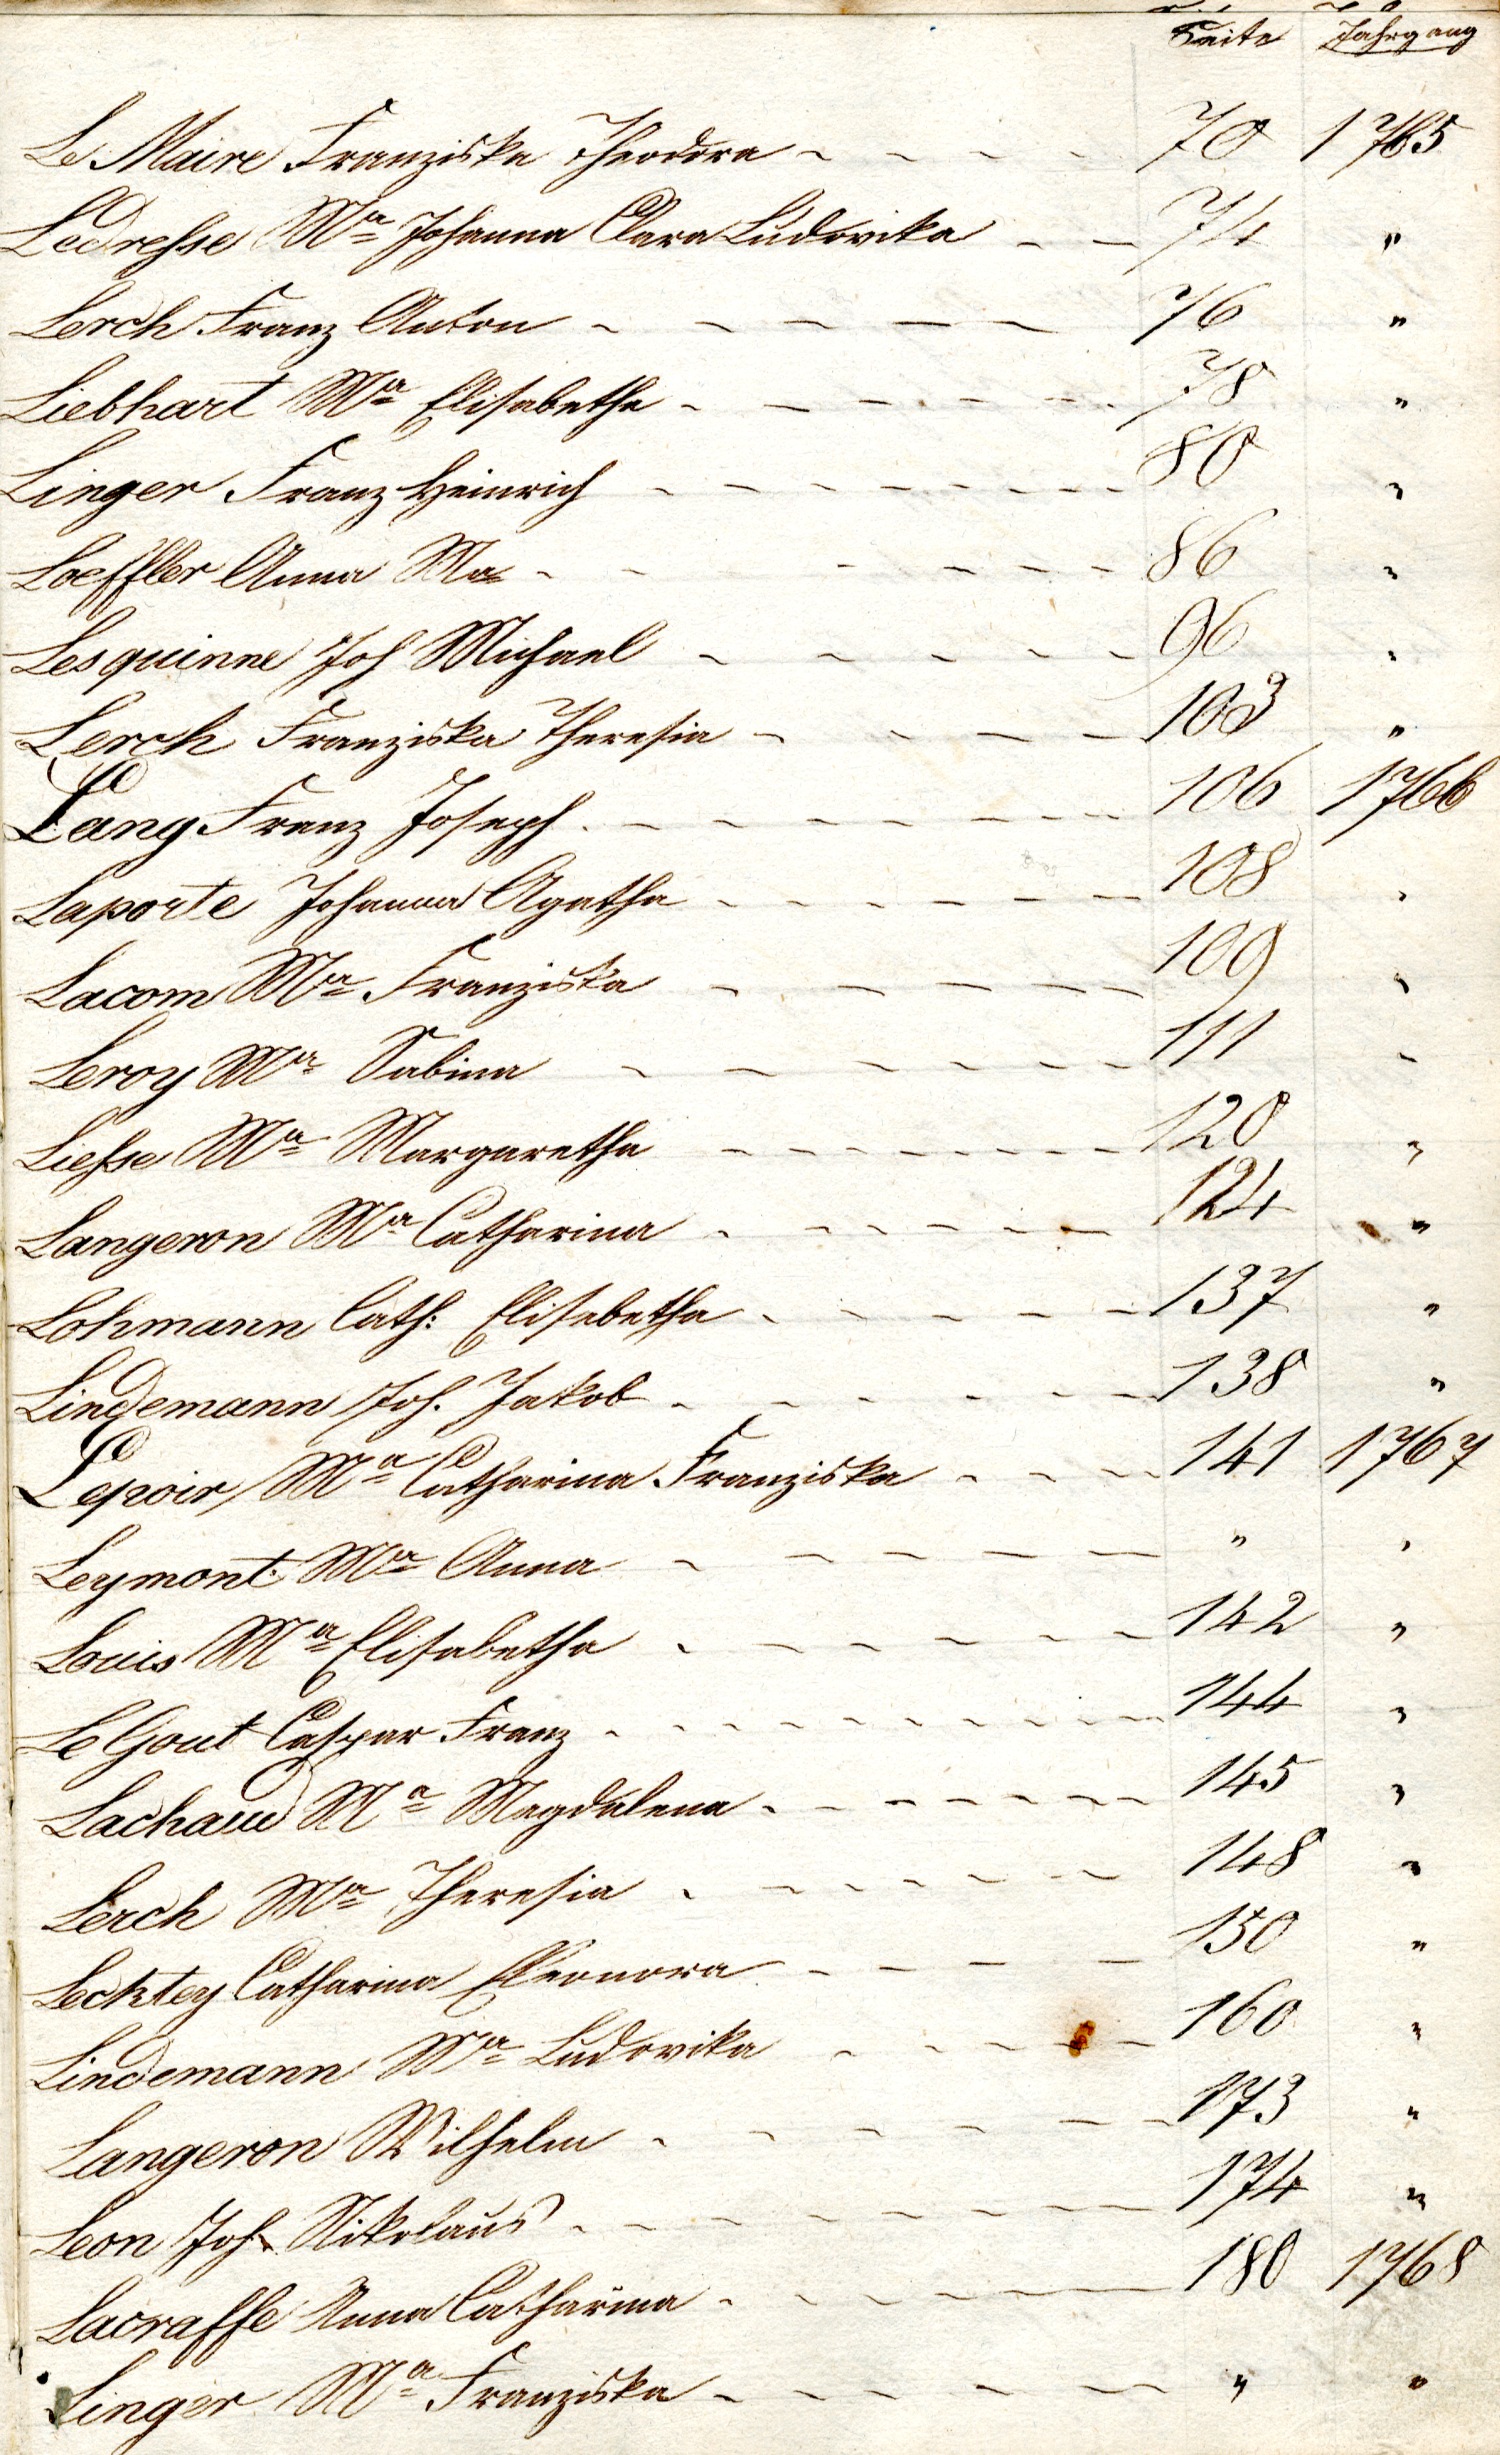 Seite Jahrgang
Le Maire Franziska Theodora - - - - 70 1765
Ledresse Ma Johanna Clara Ludovika - - 74 "
Lerch Franz Anton - - - - - - 76 "
Liebhart Ma Elisabetha - - - - - - - 78 "
Linger Franz Heinrich - - - - - - - - 80 "
Loeffler Anna Ma - - - - - - - 86 "
Lesquinne Joh Michael - - - - - - 96 "
Lerch Franziska Theresia - - - - - 103 "
Lang Franz Joseph - - - - - - - - 106 1766
Laporte Johanna Agatha - - - - - - - 108 "
Lacom Ma Franziska - - - - - - 109 "
Leroy Ma Sabina - - - - - - - 111 "
Liesse Ma Margaretha - - - - - - - - 120 "
Langeron Ma Catharina - - - - - - 124 "
Lohmann Cath: Elisabetha - - - - - 137 "
Lindemann Joh. Jakob - - - - - - 138 "
Lepoir Ma Catharina Franziska - - - - 141 1767
Leymont Ma Anna - - - - - - " "
Louis Ma Elisabetha - - - - - - - 142 "
Le Gout Caspar Franz - - - - - - - - - 144 "
Lachaud Ma Magdalena - - - - - - - 145 "
Lerch Ma Theresia - - - - - - - 148 "
Lecktey Catharina Eleonora - - - - - 150 "
Lindemann Ma Ludovika - - - - - 160 "
Langeron Wilhelm - - - - - - 173 "
Leon Joh. Nikolaus - - - - - - - - 174 "
Lacraffe Anna Catharina - - - - - - 180 1768
Linger Ma Franziska - - - - - - " "